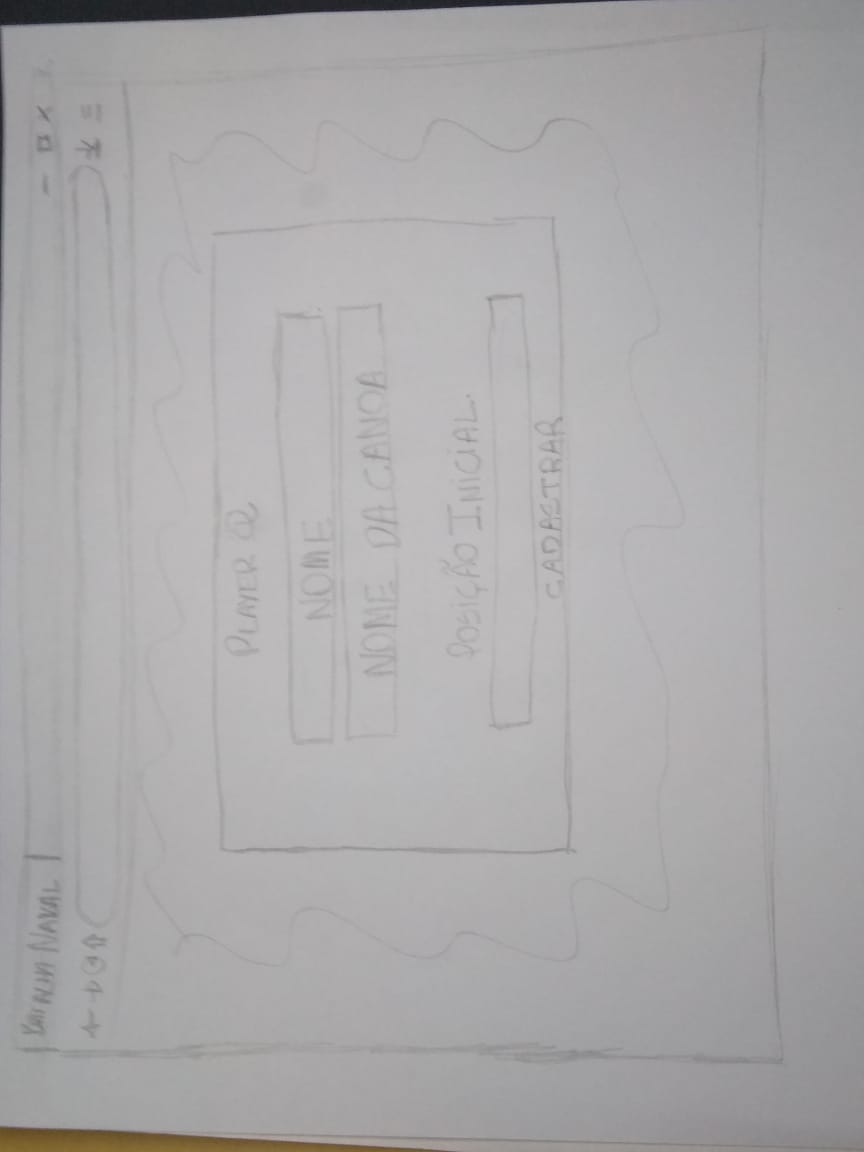 BATALHA NAVAL
PLAYER 2
NOME
NOME DA CANOA
POSIÇÃO INICIAL.
CADASTRAR